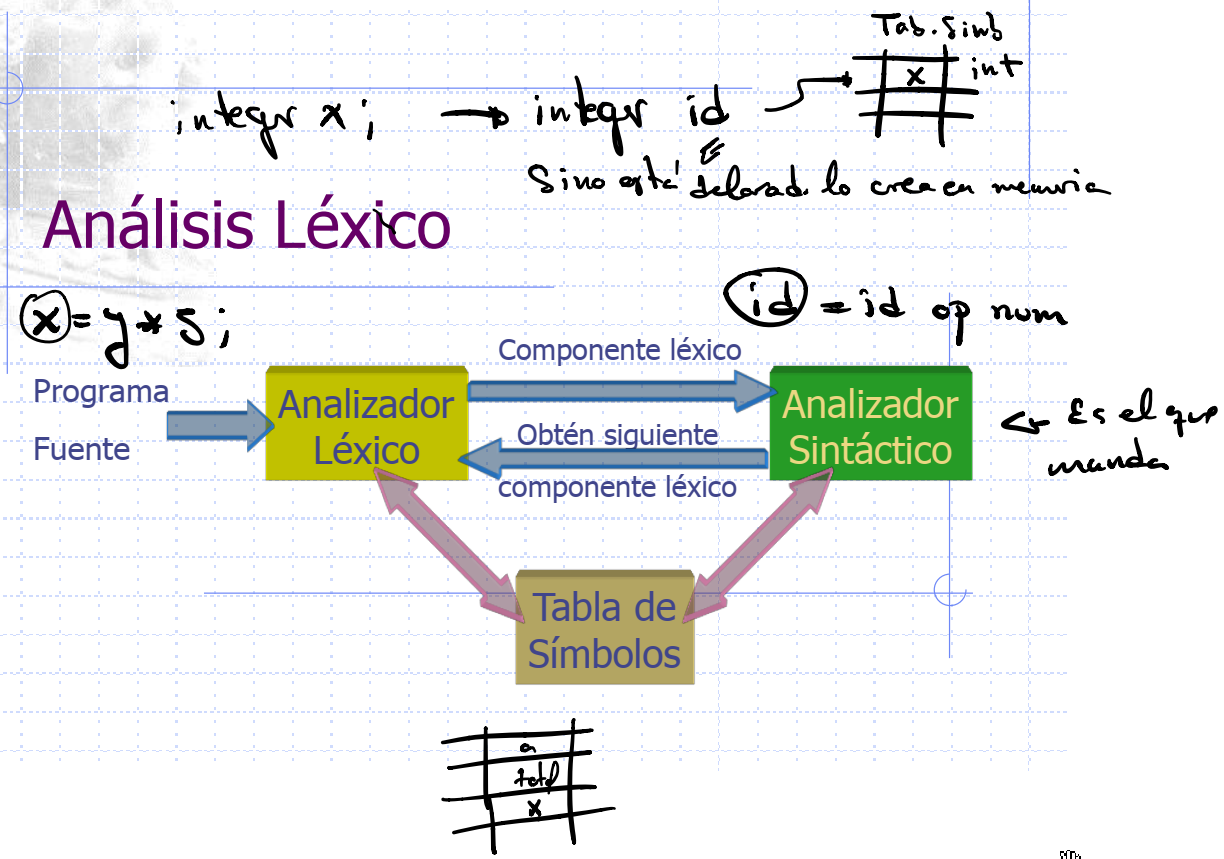 Tab. Simb
x int
integer x; → integer id
Si no está declarad. lo crea en memoria
Análisis Léxico
x = y * 5;
id = id op num
Componente léxico
Programa
Fuente
Analizador
Léxico
Obtén siguiente
componente léxico
Analizador
Sintáctico
← Es el que
manda
Tabla de
Símbolos
a
total
x